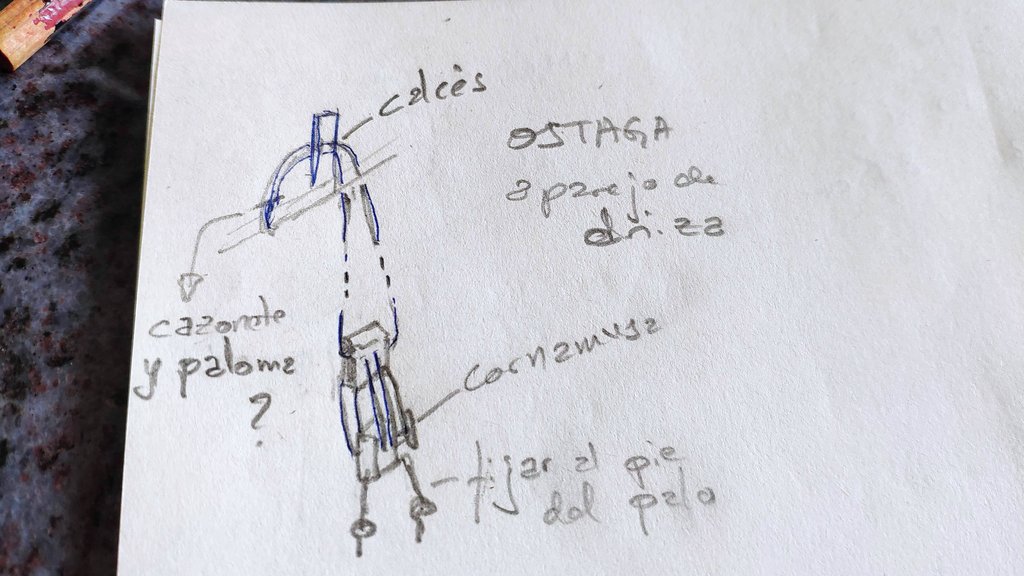 calcès
OSTAGA
aparejo de
driza
cazonete
y paloma
?
cornamusa
fijar al pie
del palo